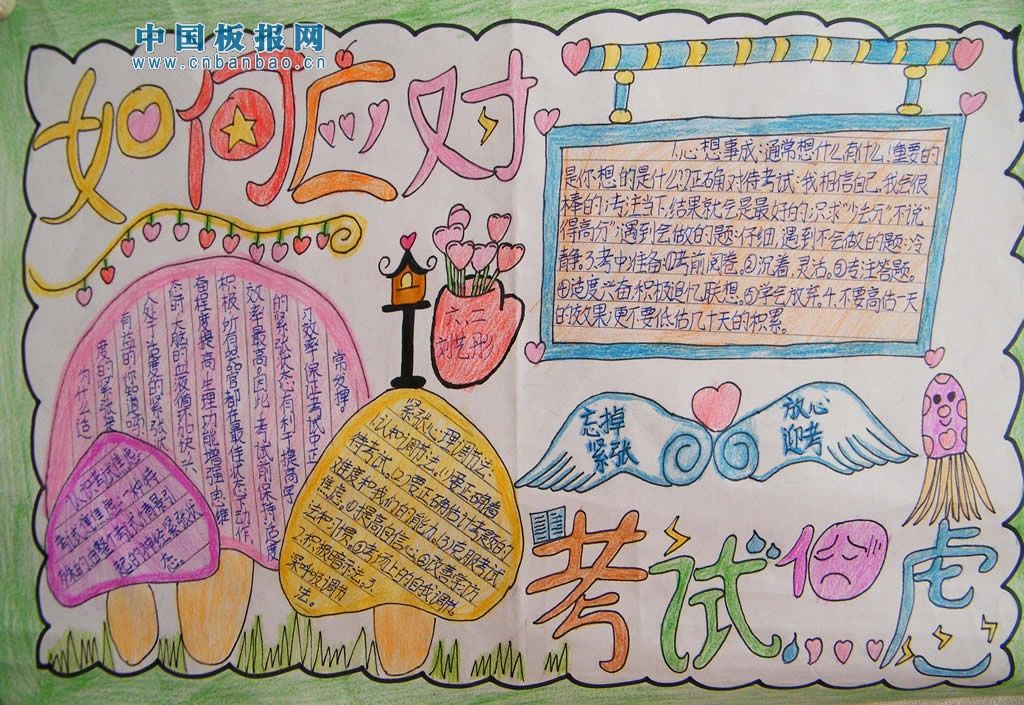 中国板报网
www.cnbanbao.cn
如何应对
1.心想事成:通常想什么有什么,重要的
是你想的是什么;2.正确对待考试:我相信自己,我会很
棒的;专注当下,结果就会是最好的;只求"少丢分"不说"
得高分";遇到会做的题:仔细,遇到不会做的题:冷
静。3.考中准备:①考前阅卷。②沉着,灵活。③专注答题。
④适度兴奋,积极追忆联想。⑤学会放弃。4.不要高估一天
的效果;更不要低估几十天的积累。
六.二
刘艺彤
为什么适
度的紧张是
有益的你知道吗?
人处于适度的紧张状
态时,大脑的血液循环加快,兴
奋程度提高,生理功能增强,
积极,所有器官都在最佳状态下动作,
效率最高。因此,考试前保持适度
的紧张状态有利于提高学
习效率,保证考试中正
常发挥。
认识考试焦虑:
考试焦虑是:一种特
殊的由整考试情景引
起的神经紧张状
态。
紧张心理调节法:
1.认知调节法。(1)要正确看
待考试。(2)要正确估计考题的
难度和我们的能力。(3)克服考试
焦虑。①提高自信心。②改善学习方
法和习惯。③考场上的自我调节。
2.积极暗示法。3.
深呼吸调节
法。
忘掉
紧张
放心
迎考
考试焦虑